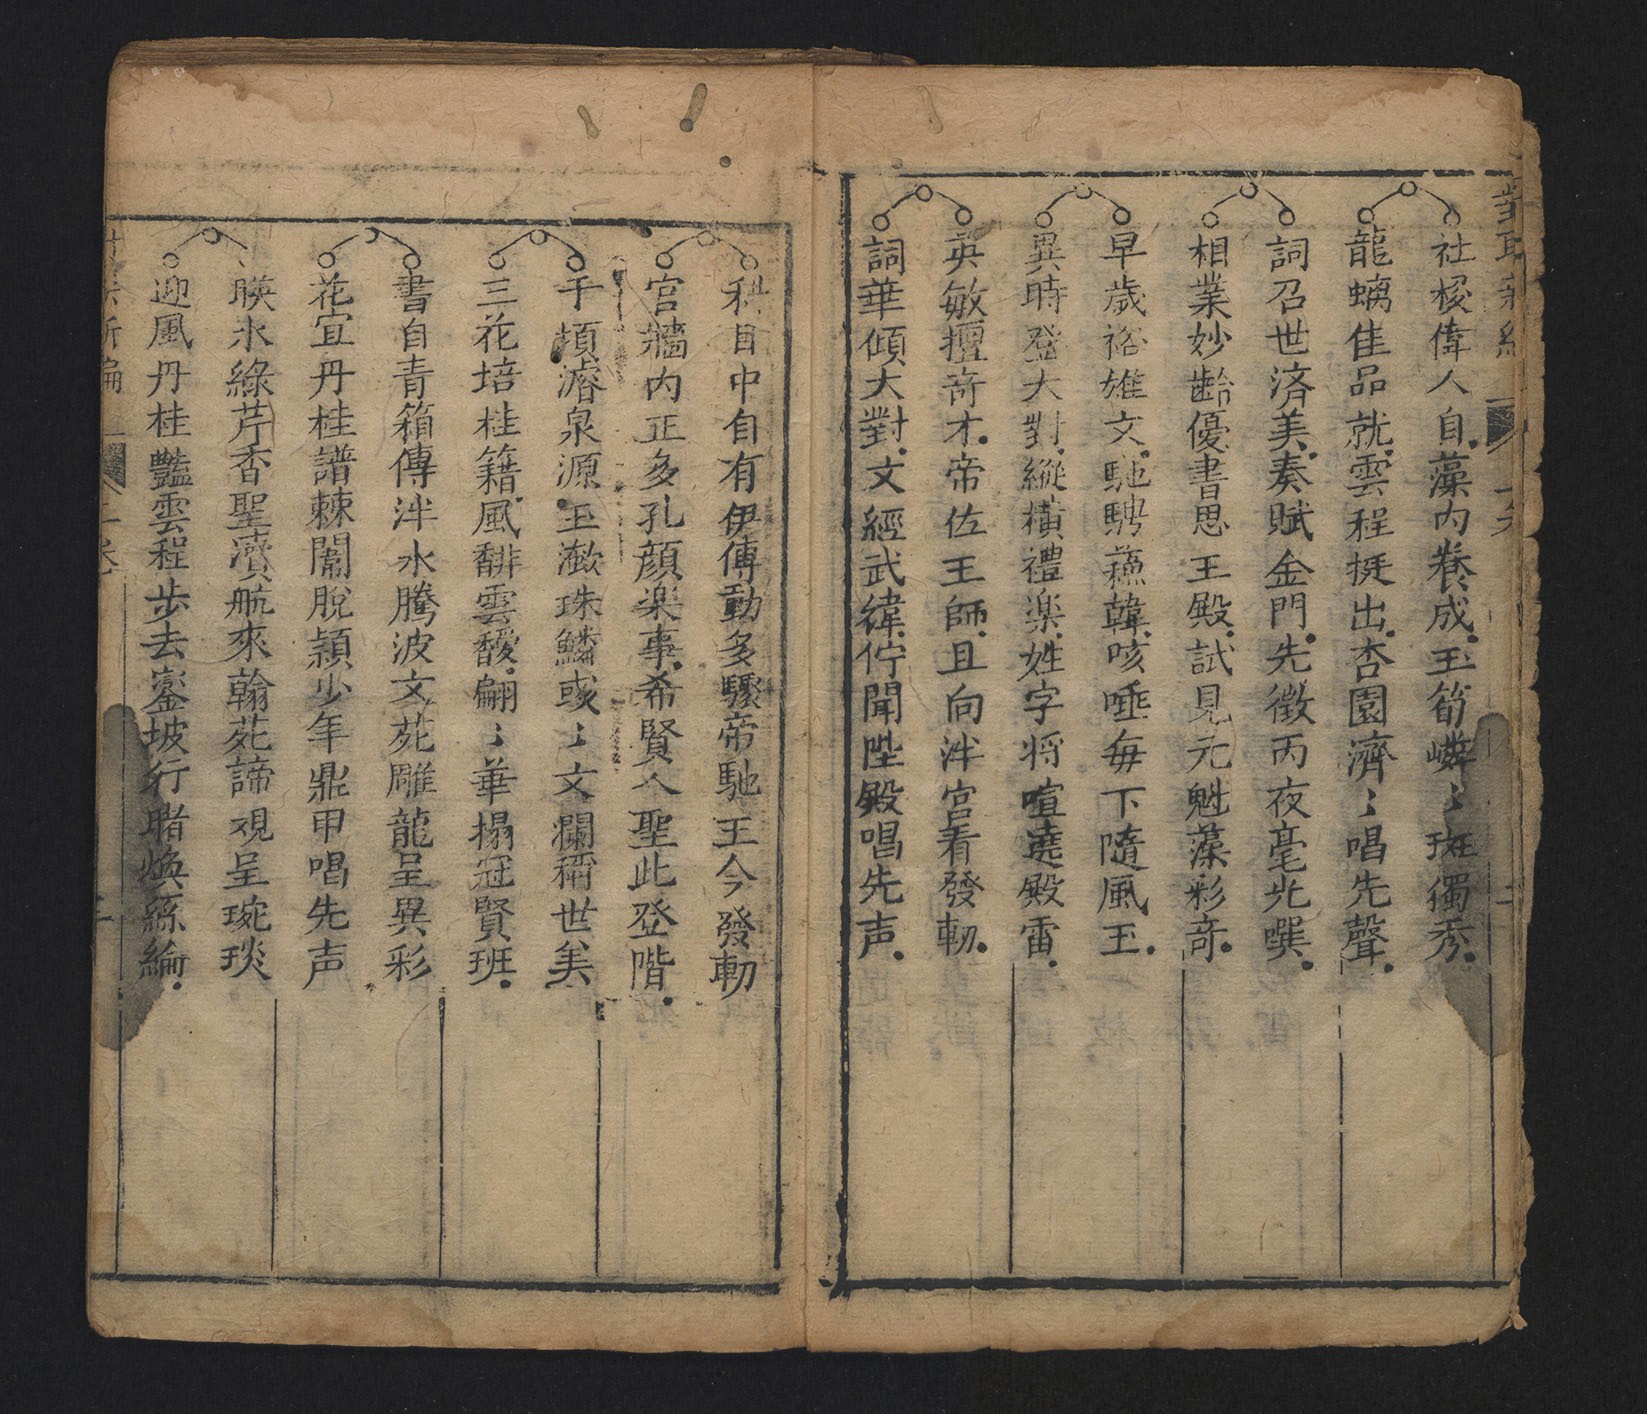 社稷偉人自藻內養成玉筍嶙〻班獨秀
龍螭佳品就雲程挺出杏園濟〻唱先聲
詞召世済美奏賦金門先徵丙夜毫光噀
相業妙齡優書思王殿試見元魁藻彩奇
早歲裕雄文馳騁蘓韓咳唾每下隨風玉
異時登大對縱橫禮楽姓字将喧曉殿雷
英敏擅奇才帝佐王師且向泮宮看發軔
詞華傾大對文經武緯佇聞陛殿唱先声
科目中自有伊傅動多驟帝馳王今發軔
宮牆內正多孔顔楽事希賢入聖此登階
千頃濬泉源玉潄珠鱗彧〻文瀾稱世美
三花培桂籍風馡雲馥翩〻華榻冠賢班
書自青箱傳泮水騰波文苑雕龍呈異彩
花宜丹桂譜棘闈脫穎少年鼎甲唱先声
暎水綠芹香聖瀆航來翰苑諦視呈琬琰
迎風丹桂豔雲程步去鑾坡行睹煥絲綸
二卷